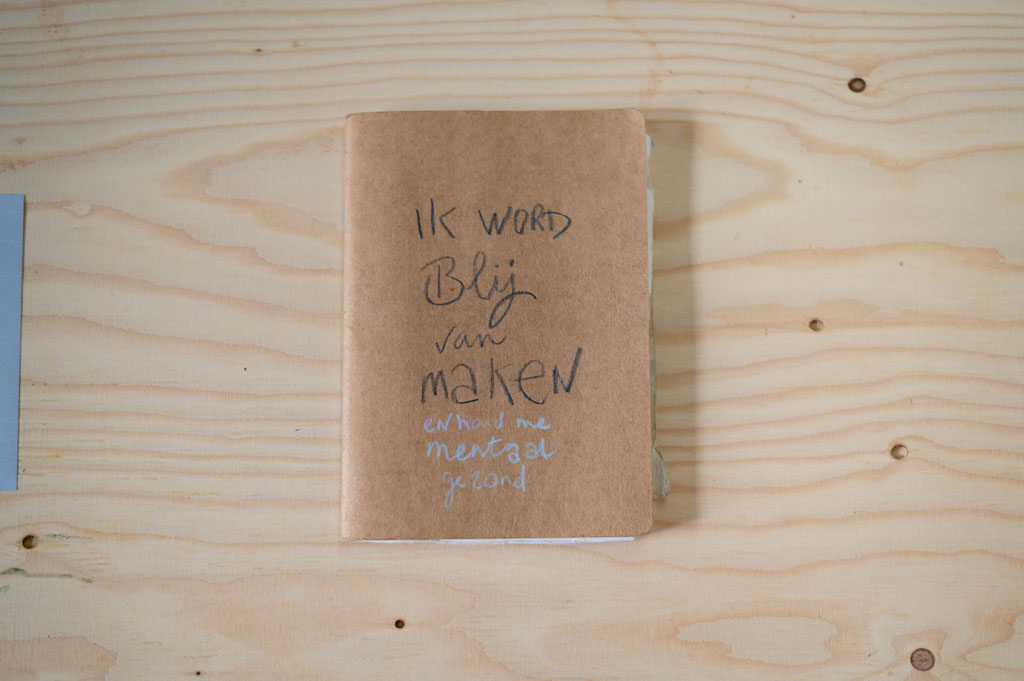 IK WORD
Blij
van
maKeN
eN houd me
mentaal
gezond